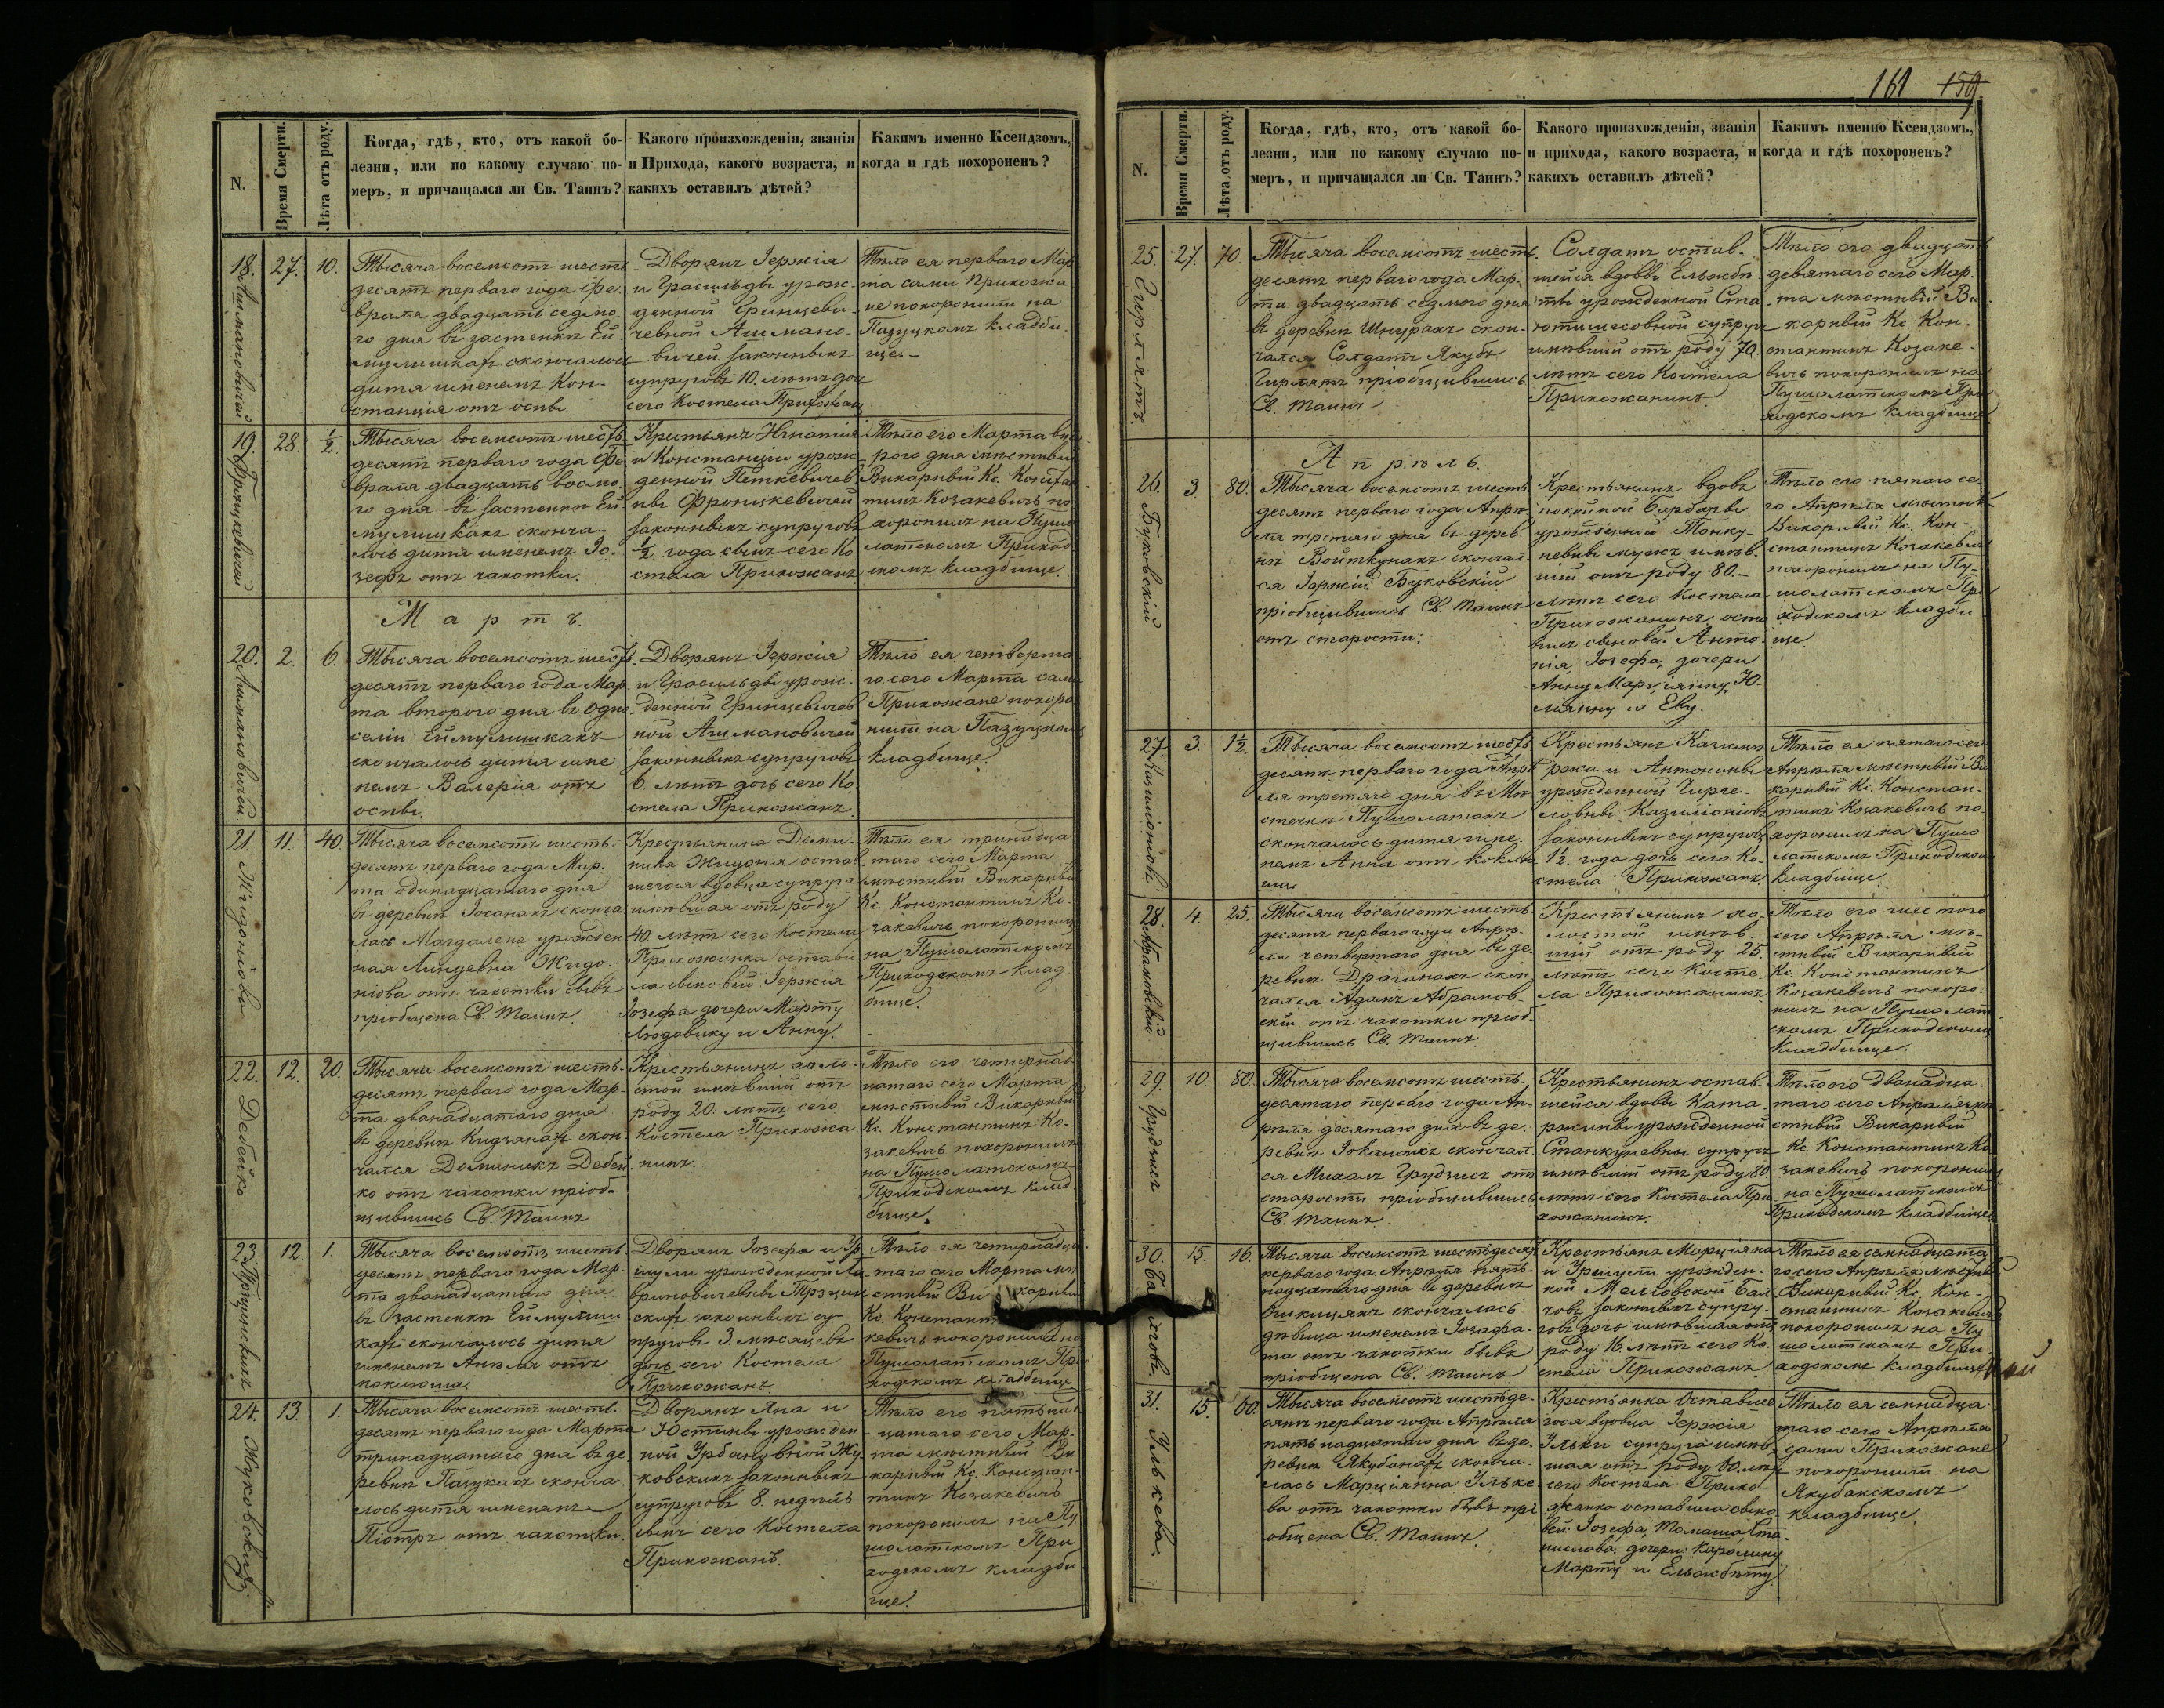 161 159
N.
Время Смерти.
Лѣта отъ роду.
Когда, гдѣ, кто, отъ какой бо-
лезни, или по какому случаю по-
меръ, и причащался ли Св. Таинъ?
Какого произхожденія, званія
и Прихода, какого возраста, и
какихъ оставилъ дѣтей?
Какимъ именно Ксендзомъ,
когда и гдѣ похороненъ?
18.
27.
10.
Тысяча восемсотъ шесть
десятъ перваго года Фе-
враля двадцать седмо-
го дня въ застенкѣ Ей-
мулишкахъ скончалось
дитя именемъ Кон-
станція отъ оспы.
Дворянъ Іержія
и Грасильды урож-
денной Гринцеви-
чевной Ашмано-
вичей законныхъ
супруговъ 10. лѣтъ дочь
сего Костела Прихожанъ
Тѣло ея перваго Мар
та сами Прихожа
не похоронили на
Пазуцкомъ кладби-
ще.
19.
Фронцкевичей
28.
½.
Тысяча восемсотъ шесть
десятъ перваго года Фе
враля двадцать восмо
го дня въ застенкѣ Ей
мулишкахъ сконча-
лось дитя именемъ Іо-
зефъ отъ чахотки.
Крестьянъ Игнатія
и Констанціи урож
денной Петкевичев
ны Фронцкевичей
законныхъ супруговъ
½. года сынъ сего Ко
стела Прихожанъ
Тѣло его Марта вто
рого дня мѣстный
Викарный Кс. Констан
тинъ Козакевичъ по
хоронилъ на Пушо
латскомъ Приход
скомъ кладбище.
Мартъ.
20.
Ашмановичей
2.
6.
Тысяча восемсотъ шесть
десятъ перваго года Мар
та второго дня въ одно
селіи Еймулишкахъ
скончалось дитя име
немъ Валерія отъ
оспы.
Дворянъ Іержія
и Грасильды урож-
денной Гринцевичев
ной Ашмановичей
законныхъ супруговъ
6. лѣтъ дочь сего Ко
стела Прихожанъ.
Тѣло ея четверта
го сего Марта сами
Прихожане похоро
нили на Пазуцкомъ
кладбище.
21.
Жидоніова
11.
40.
Тысяча восемсотъ шесть-
десятъ перваго года Мар-
та одинадцатаго дня
въ деревнѣ Іосанахъ сконча
лась Магдалена урожден
ная Линдевна Жидо-
ніова отъ чахотки бывъ
пріобщена Св. Таинъ.
Крестьянина Доми-
ника Жидоня остав
шегося вдовца супруга
имѣвшая отъ роду
40 лѣтъ сего Костела
Прихожанка остави
ла сыновей Іержія
Іозефа дочери Марту
Людовику и Анну.
Тѣло ея тринадца
таго сего Марта
мѣстный Викарный
Кс. Константинъ Ко-
закевичъ похоронилъ
на Пушолатскомъ
Приходскомъ клад
бище.
22.
Дебейко
12.
20.
Тысяча восемсотъ шесть-
десятъ перваго года Мар-
та двенадцатаго дня
въ деревнѣ Кидзянахъ скон-
чался Доминикъ Дебей
ко отъ чахотки пріоб-
щившись Св. Таинъ
Крестьянинъ холо-
стой имѣвшій отъ
роду 20. лѣтъ сего
Костела Прихожа
нинъ.
Тѣло его четырнад-
цатаго сего Марта
мѣстный Викарный
Кс. Константинъ Ко-
закевичъ похоронилъ
на Пушолатскомъ
Приходскомъ клад-
бище.
23.
12.
1.
Тысяча восемсотъ шесть
десятъ перваго года Мар-
та двенадцатаго дня
въ застенкѣ Еймулиш
кахъ скончалось дитя
именемъ Анѣля отъ
коклюша.
Дворянъ Іозефа и Ур
шули урожденной Ла
вриновичевны Трзцин
скихъ законныхъ су-
пруговъ 3. мѣсяцевъ
дочь сего Костела
Прихожанъ
Тѣло ея четырнадца
таго сего Марта мѣ
стный Ви карный
Кс. Константи
кевичъ похоронилъ на
Пушолатскомъ При
ходскомъ кладбище
24.
Жуковскихъ
13.
1.
Тысяча восемсотъ шесть-
десятъ перваго года Марта
тринадцатаго дня въ де
ревнѣ Пазукахъ сконча-
лось дитя именемъ
Піотръ отъ чахотки.
Дворянъ Яна и
Юстины урожден
ной Урбановной Жу-
ковскихъ законныхъ
супруговъ 8. недѣль
сынъ сего Костела
Прихожанъ.
Тѣло его пятьнад
цатаго сего Мар-
та мѣстный Ви
карный Кс. Констан-
тинъ Козакевичъ
похоронилъ на Пу
шолатскомъ При
ходскомъ кладби
ще.
N.
Время Смерти.
Лѣта отъ роду.
Когда, гдѣ, кто, отъ какой бо-
лезни, или по какому случаю по-
меръ, и причащался ли Св. Таинъ?
Какого произхожденія, званія
и прихода, какого возраста, и
какихъ оставилъ дѣтей?
Какимъ именно Ксендзомъ,
когда и гдѣ похороненъ?
25.
Гирлятъ.
27.
70.
Тысяча восемсотъ шесть
десятъ перваго года Мар-
та двадцать седмого дня
въ деревнѣ Шнурахъ скон-
чался Солдатъ Якубъ
Гирлятъ пріобщившись
Св. Таинъ.
Солдатъ остав-
шейся вдовы Ельжбѣ
ты урожденной Ста
супругъ
имѣвшій отъ роду 70.
лѣтъ сего Костела
Прихожанинъ.
Тѣло его двадцать
девятаго сего Мар-
та мѣстный Ви-
карный Кс. Кон-
стантинъ Козаке-
вичъ похоронилъ на
Пушолатскомъ При
ходскомъ кладбище
Апрѣль.
26.
Буковскій
3
80.
Тысяча восемсотъ шесть
десятъ перваго года Апрѣ
ля третяго дня въ дерев-
нѣ Войткунахъ скончал
ся Іержій Буковскій
пріобщившись Св. Таинъ
отъ старости.
Крестьянинъ вдовъ
покойной Барбары
урожденной Тонку-
невны мужъ имѣв-
шій отъ роду 80.
лѣтъ сего Костела
Прихожанинъ оста
вилъ сыновей Анто-
нія Іозефа, дочери
Анну Марціянну Ю-
ліянну и Еву.
Тѣло его пятаго се
го Апрѣля мѣстный
Викарный Кс. Кон-
стантинъ Козакевичъ
похоронилъ на Пу-
шолатскомъ При
ходскомъ кладби
ще
27.
3.
1½.
Тысяча восемсотъ шесть
десятъ перваго года Апрѣ
ля третяго дня въ Мѣ
стечкѣ Пушолатахъ
скончалось дитя име
немъ Анна отъ коклю
ша.
Крестьянъ Казими
ржа и Антонины
урожденной Гирле-
ловны
законныхъ супруговъ
1½. года дочь сего Ко-
стела Прихожанъ.
Тѣло ея пятаго сего
Апрѣля мѣстный Ви
карный Кс. Констан-
тинъ Козакевичъ по-
хоронилъ на Пушо
латскомъ Приходском
кладбище.
28.
Абрамовскій
4.
25.
Тысяча восемсотъ шесть
десятъ перваго года Апрѣ-
ля четвертаго дня въ де-
ревнѣ Драганахъ скон
чался Адамъ Абрамов-
скій отъ чахотки пріоб-
щившись Св. Таинъ.
Крестьянинъ хо-
лостой имѣв-
шій отъ роду 25.
лѣтъ сего Косте-
ла Прихожанинъ
Тѣло его шестого
сего Апрѣля мѣ-
стный Викарный
Кс. Константинъ
Козакевичъ похоро-
нилъ на Пушолат
скомъ Приходскомъ
Кладбище.
29.
Грудзисъ
10.
80.
Тысяча восемсотъ шесть-
десятаго перваго года Ап-
рѣля десятаго дня въ де-
ревнѣ Іоканскъ скончал
ся Михалъ Грудзисъ отъ
старости пріобщившись
Св. Таинъ.
Крестьянинъ остав-
шейся вдовы Ката-
ржины урожденной
Станкуневны супругъ
имѣвшій отъ роду 80
лѣтъ сего Костела При
хожанинъ.
Тѣло его двенадца-
таго сего Апрѣля мѣ
стный Викарный
Кс. Константинъ Ко
закевичъ похоронилъ
на Пушолатскомъ
Приходскомъ кладбище.
30.
15.
16.
Тысяча восемсотъ шестьдесят
перваго года Апрѣля пять-
надцатаго дня въ деревнѣ
скончалась
дѣвица именемъ Іозафа-
та отъ чахотки бывъ
пріобщена Св. Таинъ
Крестьянъ Марціяна
и Уршули урожден-
ной
законныхъ супру-
говъ дочь имѣвшая отъ
роду 16. лѣтъ сего Ко-
стела Прихожанъ
Тѣло ея семнадцата
го сего Апрѣля мѣстный
Викарный Кс. Кон-
стантинъ Козакевичъ
похоронилъ на Пу-
шолатскомъ При-
ходскомъ кладбище
31.
Улькева.
15.
60.
Тысяча восемсотъ шестьде-
сятъ перваго года Апрѣля
пятьнадцатаго дня въ де-
ревнѣ Якубанахъ сконча-
лась Марціянна Ульке-
ва отъ чахотки бывъ прі
общена Св. Таинъ.
Крестьянка Оставше
гося вдовца Іержія
Ульки супруга имѣв-
шая отъ роду 60. лѣтъ
сего Костела Прихо-
жанка оставила сыно-
вей: Іозефа, Томаша Ста-
нислава, дочери: Каролину
Марту и Ельжбѣту.
Тѣло ея семнадца-
таго сего Апрѣля
сами Прихожане
похоронили на
Якубанскомъ
кладбище.